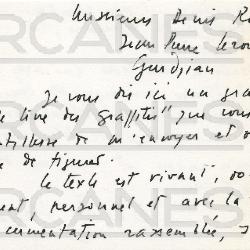 Messieurs Denis R
Jean Pierre Lero
Gurdjian
Je vous dis ici un gra
le livre des graffiti" que vous
de m'envoyer et o
de figurer.
Le texte est vivant, do
personnel et avec la
rassemblée, s
ARCANES
ARCANES
ARCANES